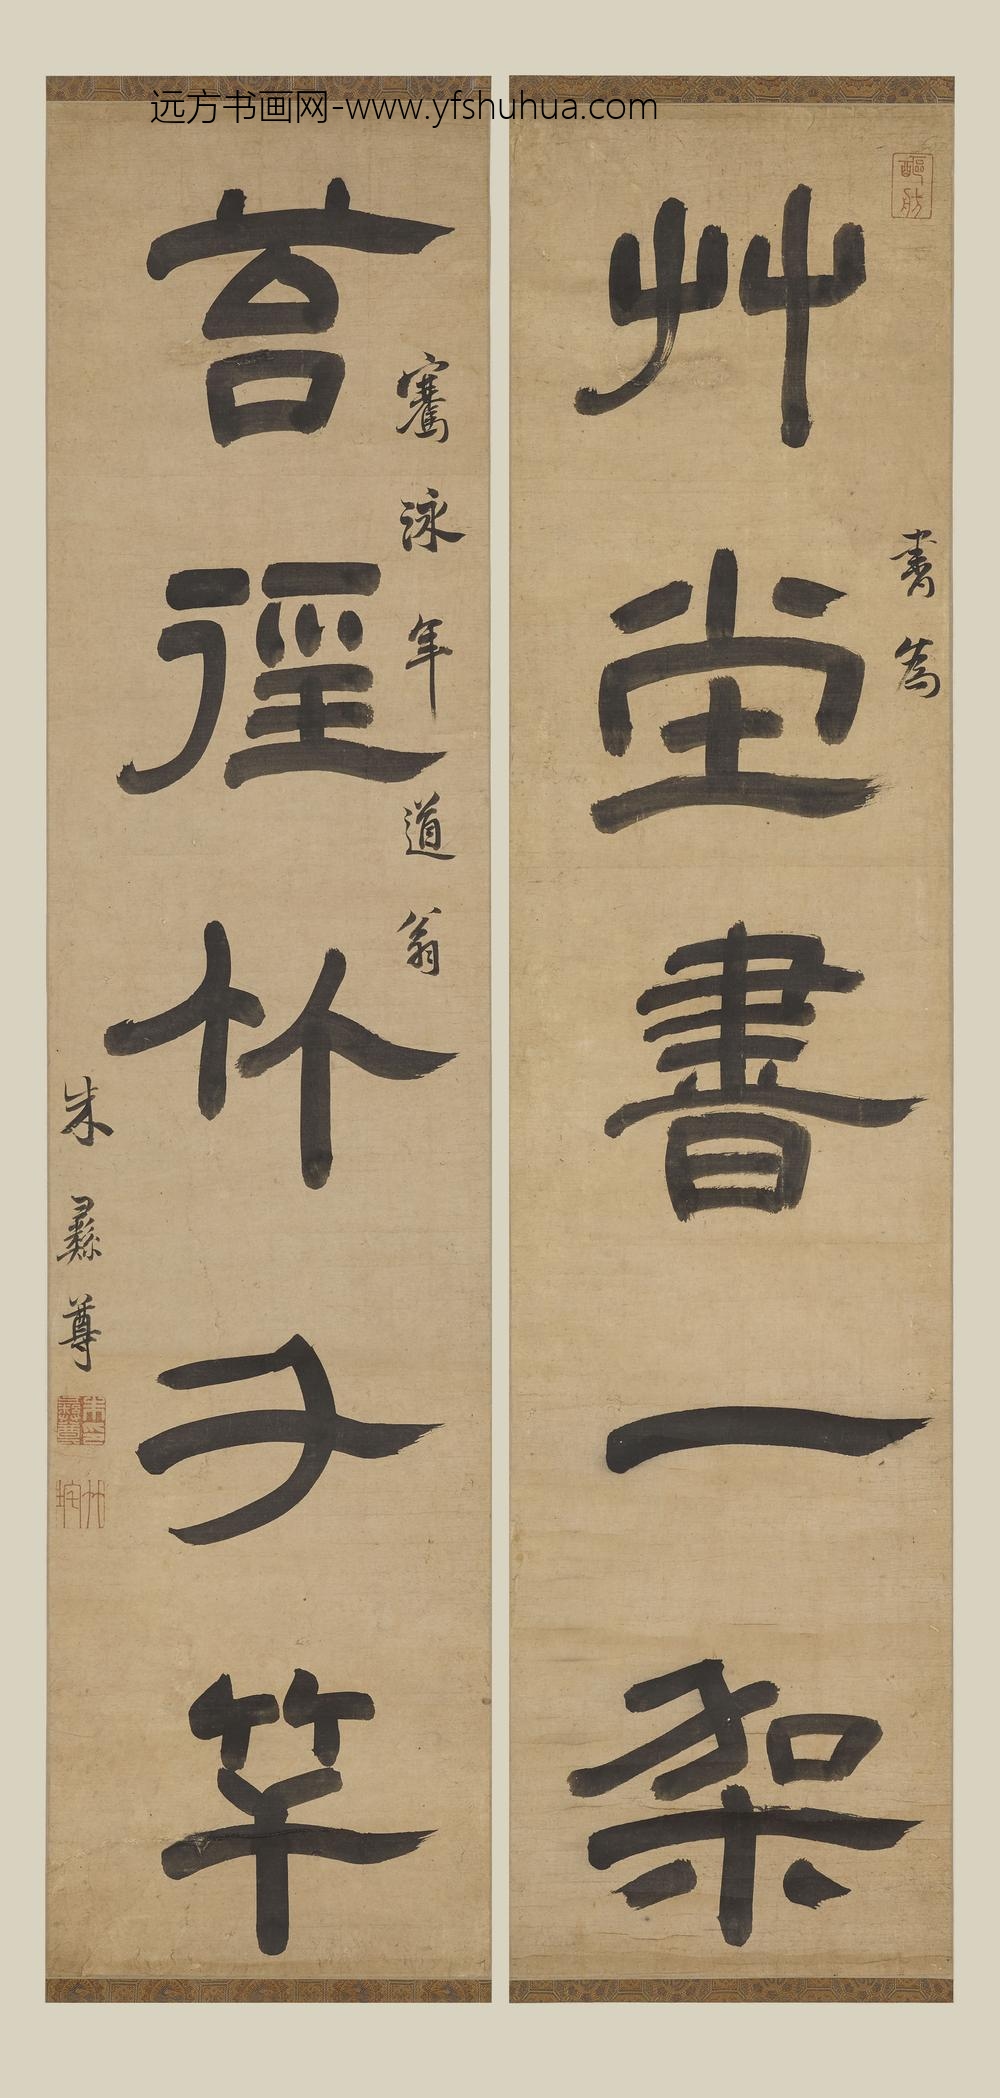 远方书画网-www.yfshuhua.com
艸堂書一架
書為
苔徑竹千竿
騫泳年道翁
朱彝尊
朱彝尊印
竹垞
醧舫